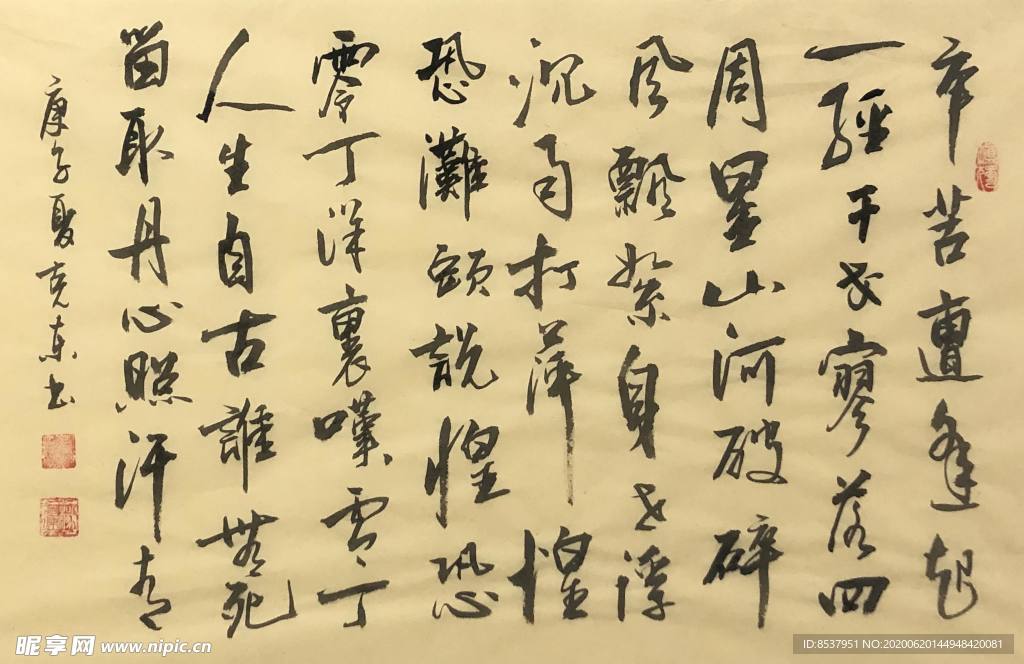 辛苦遭逢起
一經干戈寥落四
周星山河破碎
風飄絮身世浮
沉雨打萍惶
恐灘頭說惶恐
零丁洋裏嘆零丁
人生自古誰無死
留取丹心照汗青
庚子夏克東书
昵享网 www.nipic.cn
ID:8537951 NO:20200620144948420081